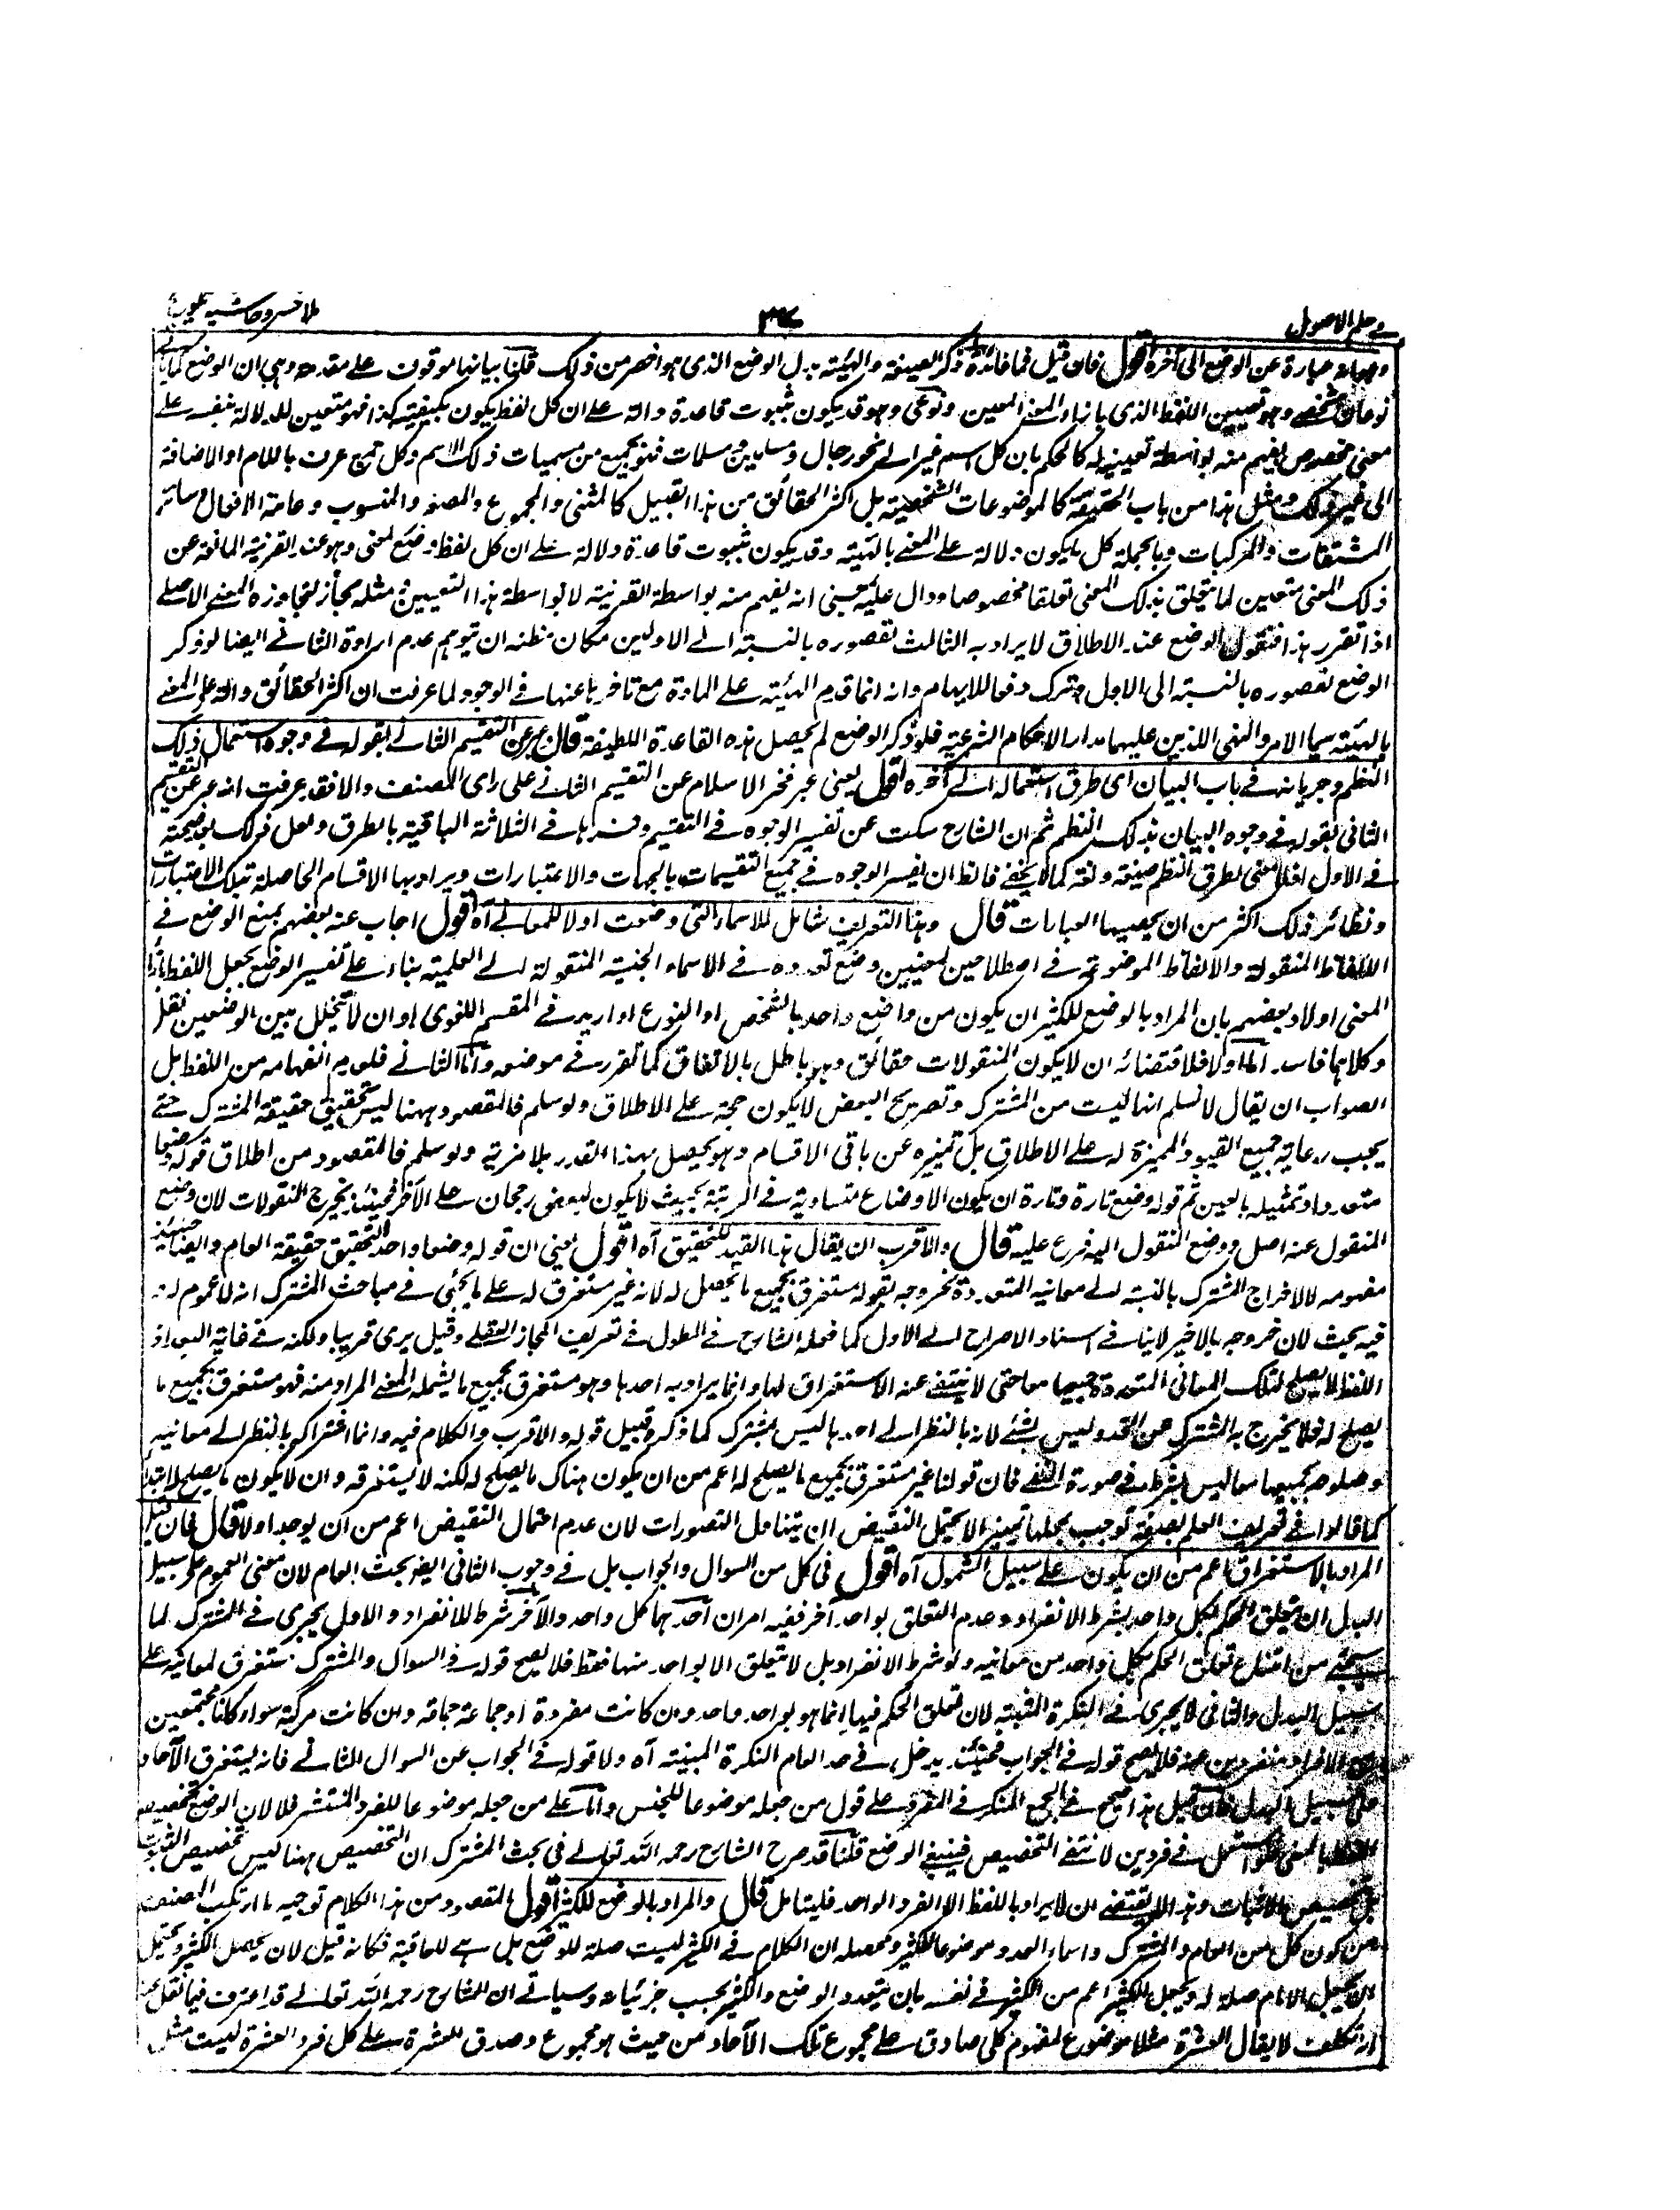 في علم الاصول
٣٤
ملا خسرو حاشيه تلويح
عبارة عن الوضع الى آخره اقول فان قيل فما فائدة ذكر الصيغة والهيئة بدل الوضع الذى هو اخصر من ذلك قلنا بيانها موقوف على مقدمة وهى ان الوضع
نوعان شخصى وهو تعيين اللفظ الذى بازاء المعنى المعين ونوعى وهو قد يكون بثبوت قاعدة دالة على ان كل لفظ يكون بكيفية كذا فهو متعين للدلالة بنفسه على
معنى مخصوص يفهم منه بواسطة تعيينه له كالحكم بان كل اسم غير الى نحو رجال ومسلمين ومسلمات فهو لجميع من مسميات ذلك الاسم وكل جمع عرف باللام او الاضافة
الى غير ذلك ومثل هذا من باب الحقيقة كالموضوعات الشخصية بل اكثر الحقائق من هذا القبيل كالمثنى والمجموع والمصغر والمنسوب وعامة الافعال وسائر
المشتقات والمركبات وبالجملة كل ما يكون دلالة على المعنى بالهيئة وقد يكون بثبوت قاعدة دالة على ان كل لفظ وضع لمعنى وهو عند القرينة المانعة عن
ذلك المعنى متعين لما يتعلق بذلك المعنى تعلقا مخصوصا ودال عليه بمعنى انه يفهم منه بواسطة القرينة لا بواسطة هذا التعيين ومثله مجاز لتجاوزه المعنى الاصلى
اذا تقرر هذا فنقول الوضع عند الاطلاق لا يراد به الثالث لقصوره بالنسبة الى الاولين مكان مظنة ان يتوهم عدم ارادة الثانى ايضا لو ذكر
الوضع لقصوره بالنسبة الى الاول فترك دفعا للايهام وانه انما قدم الهيئة على المادة مع تاخرها عنها فى الوجود لما عرفت ان اكثر الحقائق دالة على المعنى
بالهيئة سيما الامر والنهى اللذين عليهما مدار الاحكام الشرعية فلو ذكر الوضع لم يحصل هذه القاعدة اللطيفة قال عبر عن التقسيم الثانى بقوله فى وجوه استعمال ذلك
النظم وجريانه فى باب البيان اى طرق استعماله الى آخره اقول يعنى عبر فخر الاسلام عن التقسيم الثانى على راى المصنف والا فقد عرفت انه عبر عن التقسيم
الثانى بقوله فى وجوه البيان بذلك النظم ثم ان الشارح سكت عن تفسير الوجوه فى التقسيم وفسرها فى الثلاثة الباقية بالطرق ولعل ذلك
فى الاول اذ لا معنى لطرق النظم صيغة ولغة كما لا يخفى فالظ ان يفسر الوجوه فى جميع التقسيمات بالجهات والاعتبارات ويراد بها الاقسام الحاصلة بتلك الاعتبارات
ونظائر ذلك اكثر من ان يحصيها العبارات قال وهذا التعريف شامل للاسماء التى وضعت اولا للمعانى آه اقول اجاب عنه بعضهم بمنع الوضع فى
الالفاظ المنقولة والالفاظ الموضوعة فى اصطلاحين لمعنيين وضع تعدده فى الاسماء الجنسية المنقولة الى العلمية بناء على تفسير الوضع بجعل اللفظ بازاء
المعنى اولا وبعضهم بان المراد بالوضع للكثير ان يكون من واضع واحد بالشخص او النوع او اريد فى المقسم اللغوى او ان لا يتخلل بين الوضعين نقل
وكلاهما فاسد اما الاول فلاقتضائه ان لا يكون المنقولات حقائق وهو باطل بالاتفاق كما تقرر فى موضعه واما الثانى فلعدم انفهامه من اللفظ بل
الصواب ان يقال لا نسلم انها ليست من المشترك وتصريح البعض لا يكون حجة على الاطلاق ولو سلم فالمقصود ههنا ليس تحقيق حقيقة المشترك حتى
يجب رعاية جميع القيود المميزة له على الاطلاق بل تميزه عن باقى الاقسام وهو يحصل بهذا القدر بلا مزية ولو سلم فالمقصود من اطلاق قوله وضعا
متعددا وتمثيله بالعين ثم قوله وضع تارة وتارة ان يكون الاوضاع متساوية فى المرتبة بحيث لا يكون لبعض رجحان على الآخر فحينئذ يخرج المنقولات لان وضع
المنقول عنه اصل ووضع المنقول اليه فرع عليه قال والاقرب ان يقال هذا القيد للتحقيق آه اقول يعنى ان قوله وضعا واحدا لتحقيق حقيقة العام وايضا
مفهومه لا لاخراج المشترك بالنسبة الى معانيه المتعددة لخروجه بقوله مستغرق لجميع ما يصلح له لانه غير مستغرق له على ما يجئ فى مباحث المشترك انه لا عموم له
فيه بحث لان خروجه بالاخير لا ينافى اسناد الاخراج الى الاول كما فعله الشارح فى المطول فى تعريف المجاز العقلى وقيل يرى قريبا ولكنه فى غاية البعد اذ
اللفظ لا يصلح لتلك المعانى المتعددة جميعها معا حتى لا ينتفى عنه الاستغراق لها وانما يراد به احدها وهو مستغرق لجميع ما يشمله المعنى المراد منه فهو مستغرق لجميع ما
يصلح له فلا يخرج به المشترك عن الحد وليس بشئ لانه بالنظر الى احدها ليس بمشترك كما ذكره قبيل قوله والاقرب والكلام فيه وانما اشتراكه بالنظر الى معانيه
وصلوحه لجميعها معا ليس بشرط فى صورة النفى فان قولنا غير مستغرق لجميع ما يصلح له اعم من ان يكون هناك ما يصلح له لكنه لا يستغرقه وان لا يكون ما يصلح له ابتداء
كما قالوا فى تعريف العلم بصفة توجب لمحلها تمييزا لا يحتمل النقيض انه يتناول التصورات لان عدم احتمال النقيض اعم من ان يوجد اولا قال فان قيل
المراد بالاستغراق اعم من ان يكون على سبيل الشمول آه اقول فى كل من السوال والجواب بل فى وجوب الثانى ايضا بحث العام لان معنى العموم على سبيل
البدل ان يتعلق الحكم بكل واحد بشرط الانفراد وعدم التعلق بواحد آخر ففيه امران احدهما كل واحد والآخر شرط الانفراد والاول يجرى فى المشترك لما
سيجئ من امتناع تعلق الحكم بكل واحد من معانيه ولو شرط الانفراد بل لا يتعلق الا بواحد منها فقط فلا يصح قوله فى السوال والمشترك مستغرق لمعانيه على
سبيل البدل والثانى لا يجرى فى النكرة المثبتة لان تعلق الحكم فيها انما هو بواحد واحد ان كانت مفردة او جماعة جماعة وان كانت مركبة سواء كانا مجتمعين
الافراد منفردين عنه فلا يصح قوله فى الجواب فحينئذ يدخل فى حد العام النكرة المثبتة آه ولا قوله فى الجواب عن السوال الثانى فانه يستغرق الآحاد
على سبيل البدل فان قيل هذا صحيح فى الجمع المنكر فى المفرد على قول من جعله موضوعا للجنس واما على من جعله موضوعا للفرد المنتشر فلا لان الوضع تخصيص
اللفظ بالمعنى فلو استعمل فى فردين لانتفى التخصيص فينتفى الوضع قلنا قد صرح الشارح رحمه الله تعالى فى بحث المشترك ان التخصيص ههنا ليس تخصيص الثبوت
بل تخصيص بالاثبات وهذا لا يقتضى ان لا يراد باللفظ الا الفرد الواحد فليتامل قال والمراد بالوضع للكثير اقول المقصود من هذا الكلام توجيه ما ارتكب المصنف
من كون كل من العام والمشترك واسماء العدد موضوعا للكثير ومحصله ان الكلام فى الكثير ليست صلة للوضع بل هى للعاقبة فكانه قيل لان يحصل الكثير ويحتمل
ان يجعل اللام صلة له ويجعل الكثير اعم من الكثير فى نفسه بان يتعدد الوضع والكثير بحسب جزئياته وسياتى ان الشارح رحمه الله تعالى قد اعترف فيما نقل عنه
تكلف لا يقال العشرة مثلا موضوع لمفهوم كلى صادق على مجموع تلك الآحاد من حيث هو مجموع وصدق العشرة على كل فرد العشرة ليست مثل